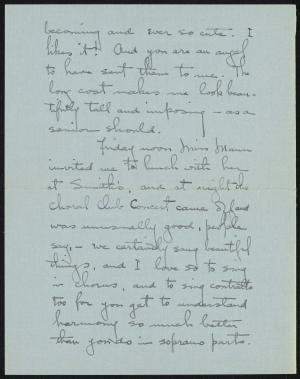 becoming and ever so cute. I
likes it! And you are an angel
to have sent them to me. The
long coat makes me look beau-
tifully tall and imposing – as a
senior should.
Friday noon Miss Mann
invited me to lunch with her
at Smith's, and at night the
Choral Club Concert came off and
was unusually good, people
say, – we certainly sang beautiful
things, and I love so to sing
in chorus, and to sing contralto
too for you get to understand
harmony so much better
than you do in soprano parts.